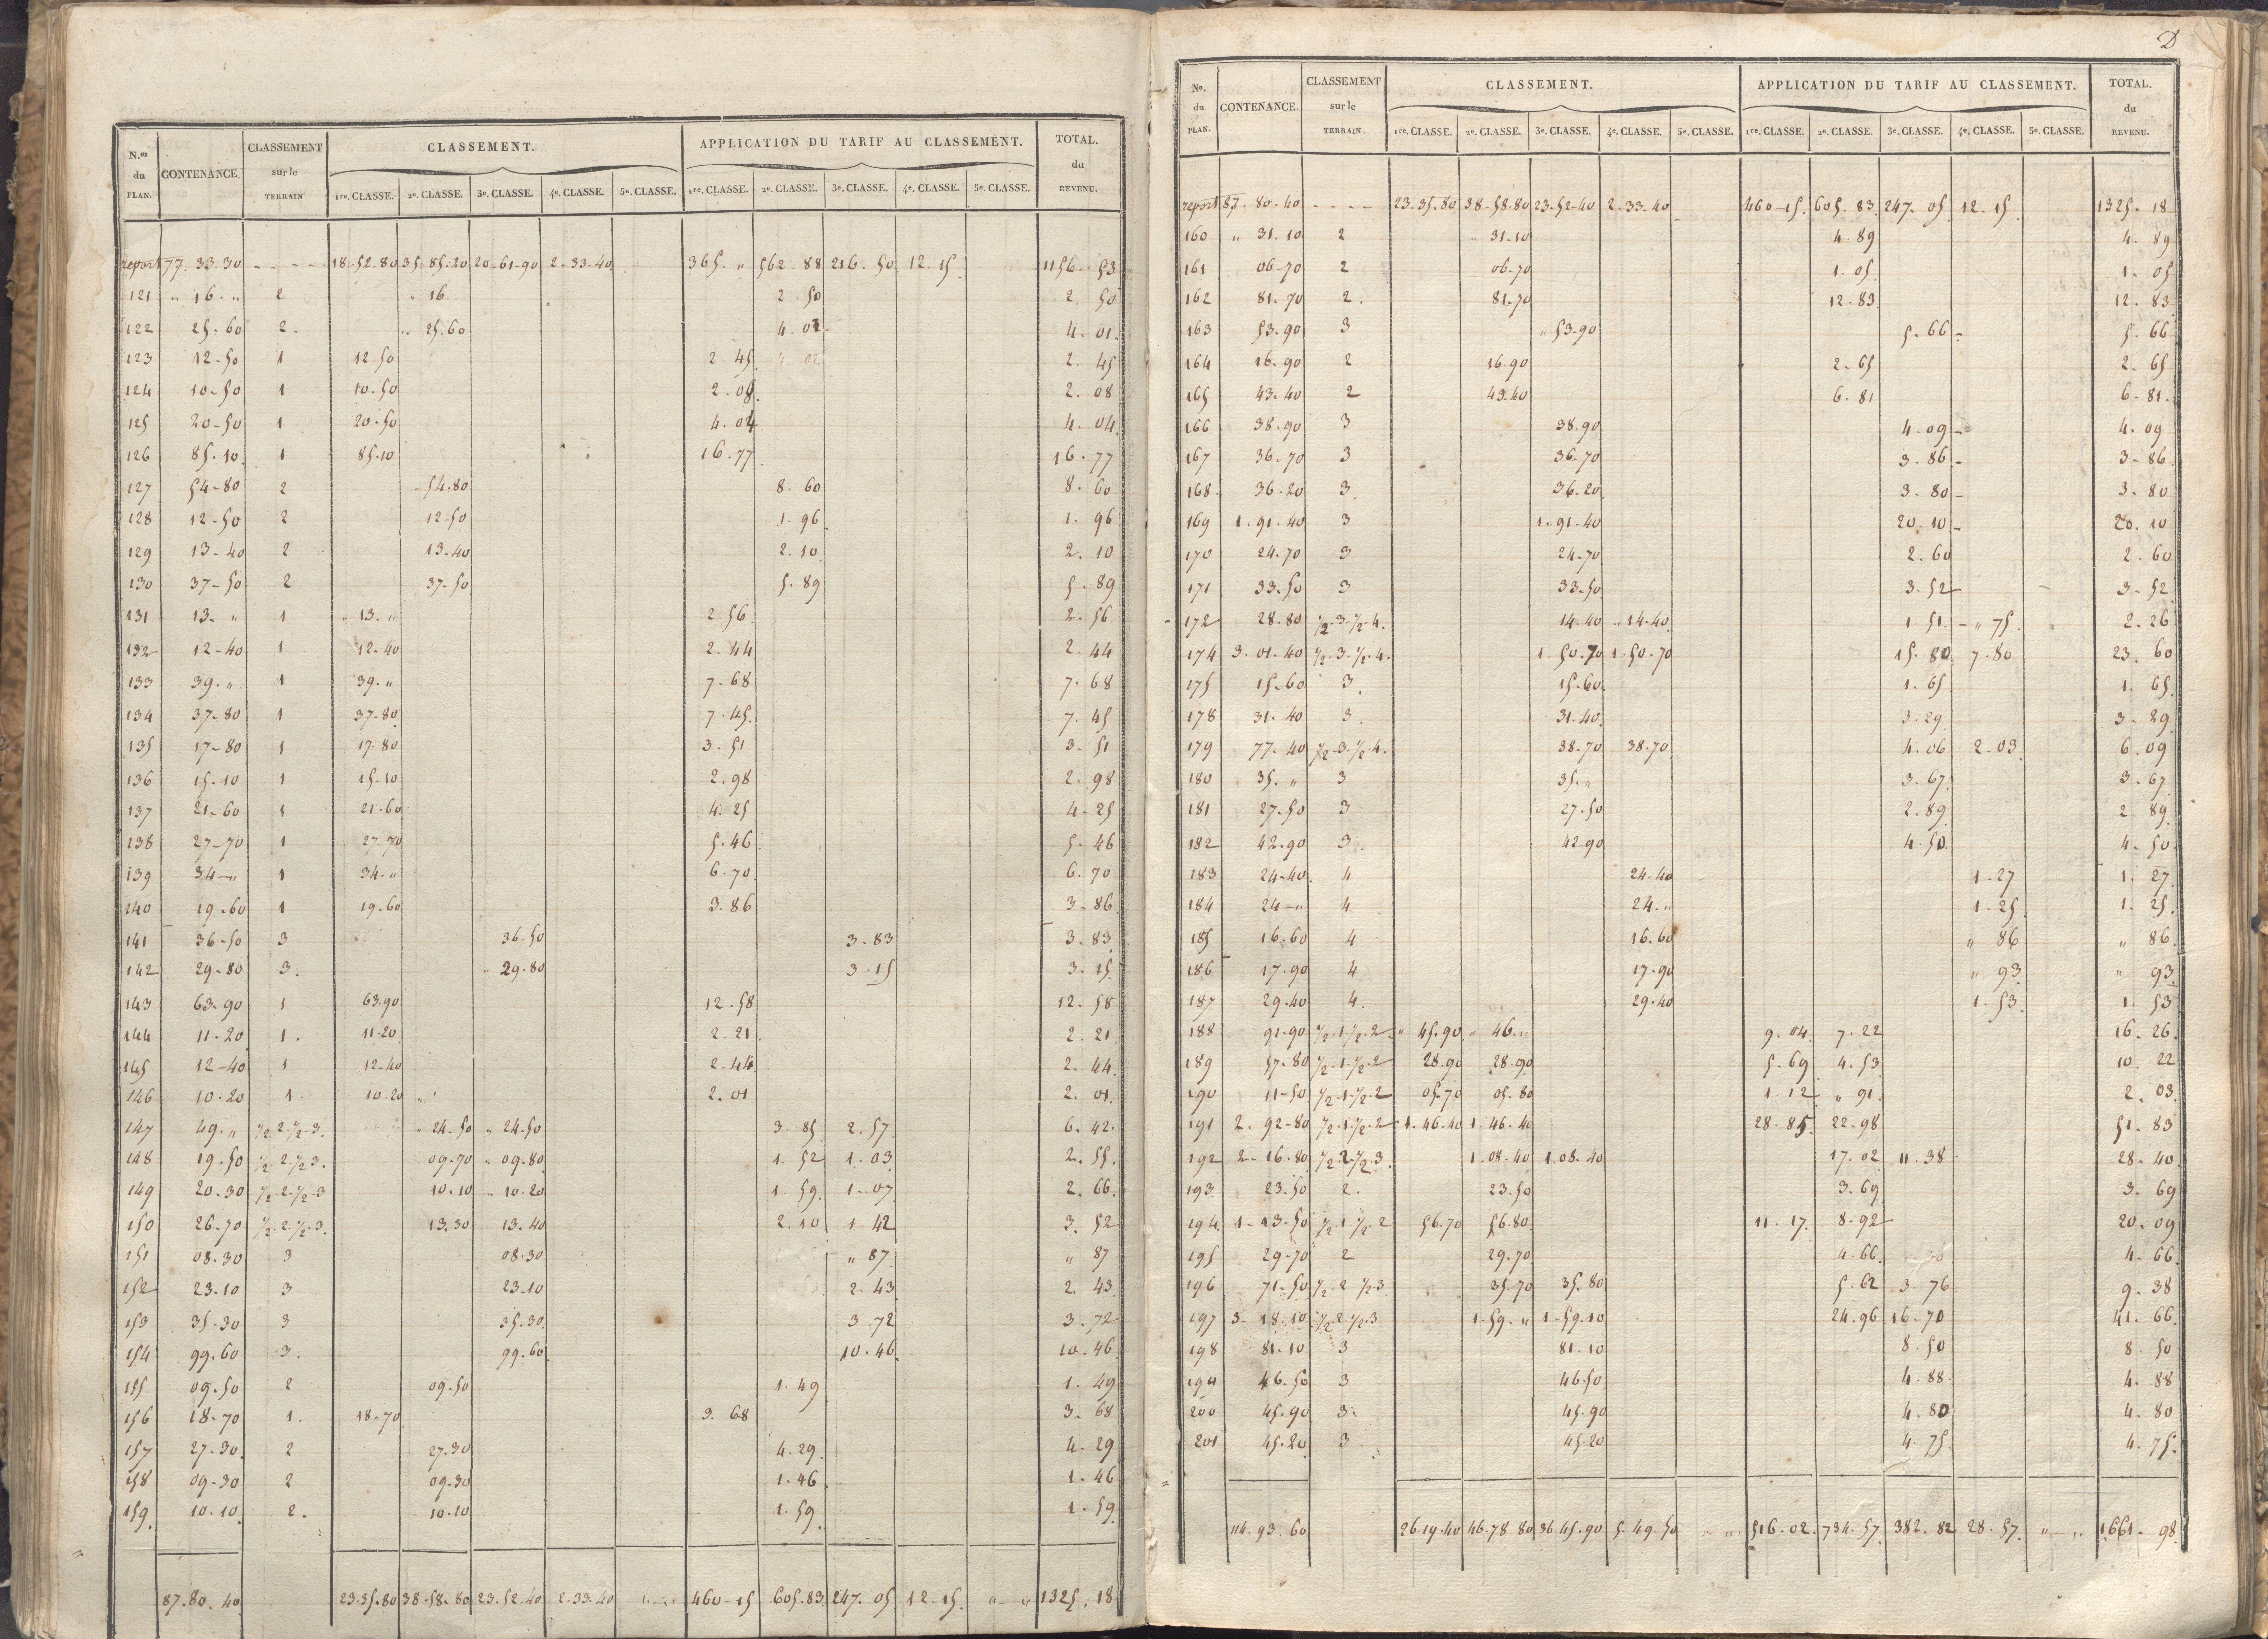 N.os du PLAN. CONTENANCE. CLASSEMENT sur le TERRAIN CLASSEMENT. APPLICATION DU TARIF AU CLASSEMENT. TOTAL. du REVENU.
1re. CLASSE. 2e. CLASSE. 3e. CLASSE. 4e. CLASSE. 5e. CLASSE. 1re. CLASSE. 2e. CLASSE. 3e. CLASSE. 4e. CLASSE. 5e. CLASSE.
report 77. 33. 30 - - - - 18-52-80 35-85-20 20-61-90 2-33-40 365. " 562-88 216. 50 12. 15 1156-53
121 " 16. " 2 " 16. 2. 50 2. 50
122 25. 60 2. " 25.60 4. 01 4. 01.
123 12-50 1 12-50 2. 45 4. 02 2. 45
124 10-50 1 10-50 2. 08. 2. 08
125 20-50 1 20-50 4. 04 4. 04.
126 85. 10 1 85.10 16. 77 16. 77
127 54-80 2 54.80 8. 60 8. 60
128 12-50 2 12-50 1. 96 1. 96
129 13-40 2 13-40 2. 10 2. 10
130 37-50 2 37-50 5. 89 5. 89
131 13. " 1 " 13. " 2. 56 2. 56
132 12-40 1 12-40 2. 44 2. 44
133 39. " 1 39. " 7. 68 7. 68
134 37-80 1 37-80 7. 45. 7. 45
135 17-80 1 17-80 3. 51 3. 51
136 15-10 1 15-10 2. 98 2. 98
137 21-60 1 21-60 4. 25 4. 25
138 27-70 1 27-70 5. 46 5. 46
139 34-" 1 34. " 6. 70. 6. 70
140 19-60 1 19-60 3. 86 3. 86
141 36-50 3 36-50 3. 83 3. 83
142 29-80 3. " 29-80 3. 15 3. 15
143 63-90 1 63.90 12. 58 12. 58
144 11-20 1. 11-20 2. 21 2. 21
145 12-40 1 12-40 2-44 2. 44.
146 10.20 1 10-20 " 2. 01 2. 01.
147 49. " 1/2.2.1/2.3. " 24-50 " 24.50 3. 85 2. 57 6. 42.
148 19.50 1/2.2.1/2.3. 09.70 " 09.80 1. 52 1. 03 2. 55.
149 20-30 1/2.2.1/2.3 10.10 " 10.20 1. 59. 1. 07 2. 66.
150 26-70 1/2.2.1/2.3. 13.30 13.40 2. 10 1. 42 3. 52
151 08.30 3 08-30 " 87 " 87
152 23.10 3 23.10 2. 43 2. 43
153 35.30 3 35.30. 3. 72 3. 72
154 99.60 3. 99.60 10. 46. 10. 46
155 09.50 2 09.50 1. 49 1. 49
156 18.70 1. 18-70 3. 68 3. 68
157 27-30. 2 27.30 4. 29. 4. 29
158 09-30 2 09-30 1-46 1. 46
159. 10.10. 2. 10.10 1. 59. 1. 59
87. 80. 40 23.35.80 38-58-80 23.52.40 2-33-40 "-" 460-15 605.83. 247. 05 12-15. "-" 1325. 18
D
No. du PLAN. CONTENANCE. CLASSEMENT sur le TERRAIN. CLASSEMENT. APPLICATION DU TARIF AU CLASSEMENT. TOTAL. du REVENU.
1re. CLASSE. 2e. CLASSE. 3e. CLASSE. 4e. CLASSE. 5e. CLASSE. 1re. CLASSE. 2e. CLASSE. 3e. CLASSE. 4e. CLASSE. 5e. CLASSE.
report 87. 80-40 - - - - 23.35.80 38-58.80 23-52-40 2-33-40 460-15. 605. 83. 247. 05 12-15. 1325. 18
160 " 31. 10 2 " 31.10 4. 89 4. 89
161 06-70 2 06-70 1. 05 1. 05
162 81-70 2. 81-70 12. 83. 12. 83
163 53.90 3 " 53-90 5. 66- 5. 66
164 16.90 2 16.90 2. 65 2. 65
165 43.40 2 43.40 6. 81 6. 81.
166 38.90 3 38.90 4. 09- 4. 09
167 36-70 3 36-70 3. 86- 3. 86.
168. 36-20 3. 36-20 3. 80- 3. 80
169 1. 91. 40 3 1-91-40 20. 10- 20. 10
170 24.70 3 24-70 2. 60 2. 60
171 33.50 3 33-50 3-52 3-52
172 28.80 1/2.3.1/2.4. 14.40 " 14-40 1. 51. - " 75. 2. 26
174 3-01.40 1/2.3.1/2.4. 1.50.70 1-50-70 15. 80 7-80 23. 60
175 15-60 3. 15-60. 1. 65 1. 65.
178 31.40 3. 31.40. 3. 29 3. 29
179 77.40 1/2.3.1/2.4. 38.70 38-70 4. 06 2-03. 6. 09
180 35. " 3 35. " 3. 67. 3. 67
181 27.50 3 27-50 2. 89. 2. 89
182 42.90 3. 42.90 4. 50. 4. 50.
183 24-40. 4 24-40 1-27 1. 27
184 24-" 4 24. " 1-25. 1. 25.
185 16.60 4 16.60 " 86 " 86
186 17.90 4 17.90 " 93 " 93
187 29.40 4. 29.40 1. 53 1. 53
188 91.90 1/2.1.1/2.2 " 45.90 " 46. " 9. 04. 7. 22 16. 26.
189 57.80 1/2.1.1/2.2 28.90 28.90 5. 69 4. 53 10. 22
190 11-50 1/2.1.1/2.2 05.70 05.80 1. 12 " 91. 2. 03.
191 2. 92-80 1/2.1.1/2.2 1.46-40 1-46-40 28. 85 22-98 51. 83
192 2-16.80 1/2.2.1/2.3. 1.08.40 1.08.40 17. 02 11. 38 28. 40
193 23.50 2. 23.50 3. 69 3. 69
194 1-13-50 1/2.1.1/2.2 56.70 56.80 11. 17. 8-92 20. 09
195 29-70 2 29.70 4. 66. 4. 66
196 71.50 1/2.2.1/2.3 35.70 35.80 5. 62 3. 76 9. 38
197 3. 18.10 1/2.2.1/2.3 1-59. " 1-59.10 24.96 16-70 41. 66
198 81.10 3 81.10 8. 50 8. 50
199 46.50 3 46.50 4. 88. 4. 88
200 45.90 3. 45.90 4. 80 4. 80
201 45.20 3. 45.20 4. 75. 4. 75.
114. 93. 60 26.19.40 46-78-80 36.45.90 5-49-50 " " 516. 02. 734. 57. 382. 82 28. 57. "- " 1661. 98